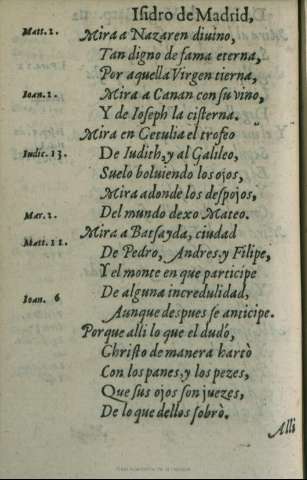 Isidro de Madrid,
Matt. 2. Mira a Nazaren diuino,
Tan digno de fama eterna,
Por aquella Virgen tierna,
Ioan. 2. Mira a Canan con su vino,
Y de Ioseph la cisterna.
Mira en Cetulia el trofeo
Iudic. 13. De Iudith, y al Galileo,
Suelo boluiendo los ojos,
Mira adonde los despojos,
Mar. 2. Del mundo dexo Mateo.
Matt. 11. Mira a Batsayda, ciudad
De Pedro, Andres, y Filipe,
Y el monte en que participe
Ioan. 6 De alguna incredulidad,
Aunque despues se anticipe.
Porque alli lo que el dudó,
Christo de manera hartò
Con los panes, y los pezes,
Que sus ojos son juezes,
De lo que dellos sobrò.
Alli